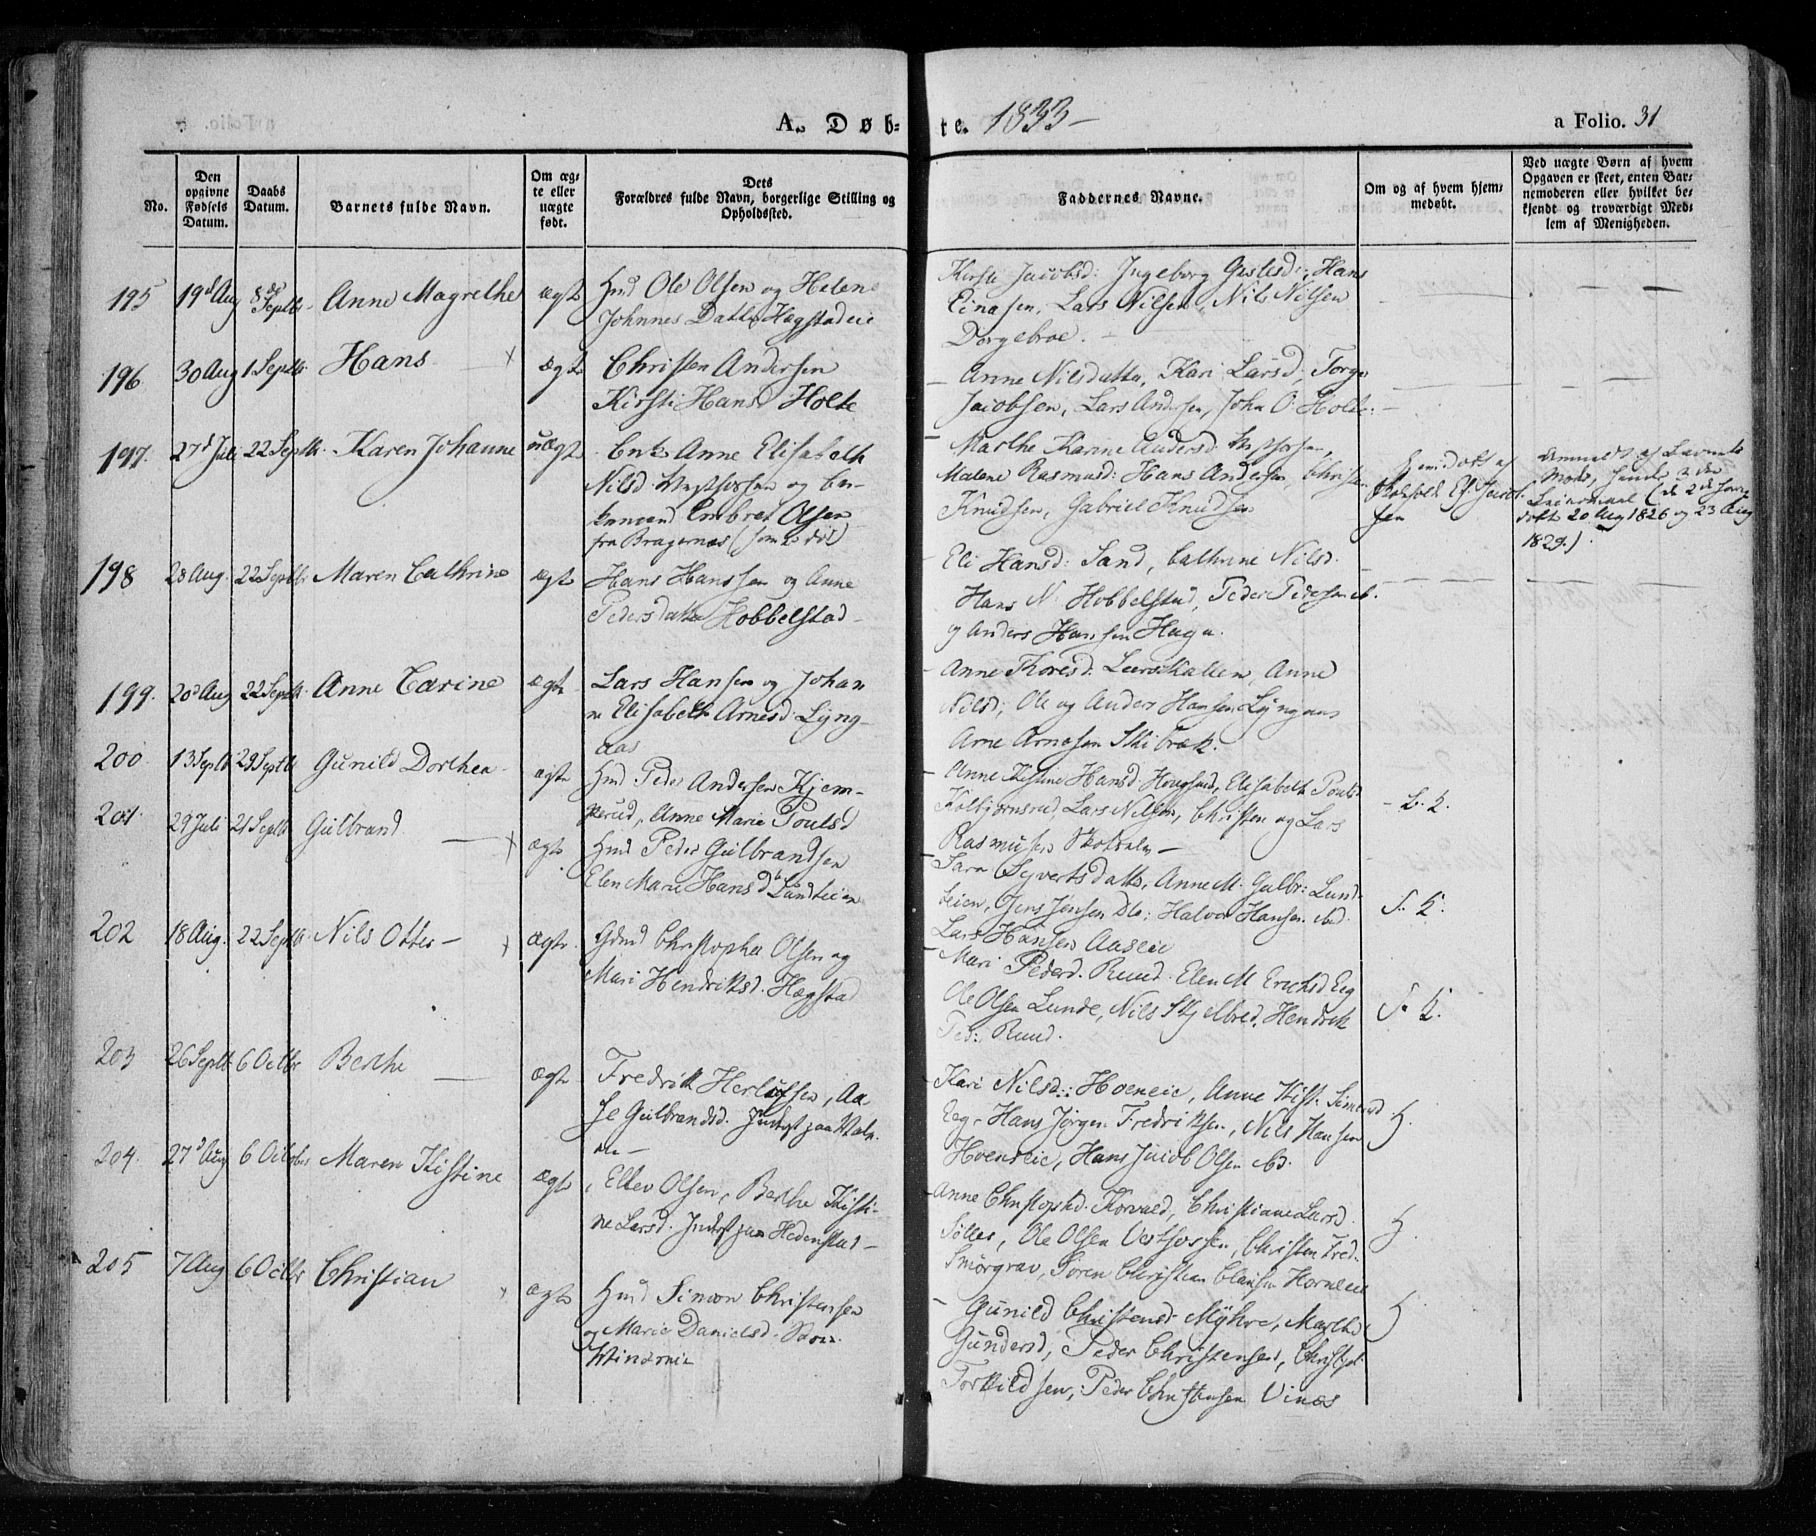 A. Døb-te. 1833-
a Folio. 31
No.
Den opgivne Fødsels Datum.
Daabs Datum.
Barnets fulde Navn.
Om ægte eller uægte født.
Dets Forældres fulde Navn, borgerlige Stilling og Opholdssted.
Faddernes Navne.
Om og af hvem hjemmedøbt.
Ved uægte Børn af hvem Opgaven er skeet, enten Barnemoderen eller hvilket bekjendt og troværdigt Medlem af Menigheden.
195 19d Aug 8de Septbr Anne Magrethe ægte Hmd Ole Olsen og Helene
Johnnes Datter Hægstadeie
Kirsti Jacobsd: Ingeborg Hans
Einarsen, Lars Nilsen, Nils Nilsen
Dorgebroe.
196 30 Aug 1 Septbr Hans ægte Christen Andersen
Kirsti Hansd Holte
Anne Nilsdatter, Kari Larsd, Torger
Jacobsen, Lars Andersen, John O. Holte
197. 27d Juli 22 Septbr. Karen Johanne uægte Enke Anne Elisabeth
Nilsd. Vestfossen og
Embret Olsen
fra Bragernæs (
Marthe Karine Andersd Vestfossen,
Malene Rasmusd: Hans Andersen, Christen
Knudsen, Gabriel Knudsen
Hjemdøbt af
Ef. Jacobsen
Anmeldt af Barnets
Moder, hendes 3die
Leiermaal (de 2de forrige
døbt 20 Aug 1826 og 23 Aug
1829.)
198 28 Aug. 22 Septbr Maren Cathrine ægte Hans Hanssen og Anne
Pedersdatter Hobbelstad
Eli Hansd: Sand, Cathrine Nilsd.
Hans N. Hobbelstad, Peder Pedersen ibd.
og Anders Hansen Haga.
199. 20d Aug 22 Septbr. Anne Carine ægte Lars Hansen og Johan
ne Elisabeth Arnesd. Lyng-
aas
Anne Thoresd. Leerskallen, Anne
Nilsd; Ole og Anders Hansen Lyngaas
Arne Arnesen Skibræk.
200 13 Septb 29 Septbr Gunild Dorthea ægte Hmd Peder Andersen Kjem-
perud, Anne Marie Poulsd
Anne Kistine Hansd. Hougsrud, Elisabeth Poulsd
Kolbjørnsrud, Lars Nilsen, Christen og Lars
Rasmusen Skotselv-
L. K.
201. 29 Juli 21 Septbr Gulbrand ægte Hmd Peder Gulbrandsen
Elen Marie Hansd Lundteien
Sara Syvertsdatter, Anne M. Gulbr: Lund-
teien, Jens Jensen Do; Halvor Hansen ibd.
Lars Hansen Aaseie
F. K.
202 18 Aug. 22 Septbr. Nils Otter- ægte. Gdmd Christopher Olsen og
Mari Hendriksd. Hægstad
Mari Pedersd. Ruud. Elen M. Erichsd Eeg
Ole Olsen Lunde, Nils Skjelbred, Hendrik
Ped: Ruud.
F. K.
203 26 Septbr 6 Octbr Berthe ægte Fredrik Herlofsen, Aa
se Gulbrandsd. Inderst paa
Kari Nilsd:: Hoeneie, Anne Kist. Simensd
Eeg. Hans Jørgen Fredriksen, Nils Hansen
Hoeneeie, Hans Jacob Olsen ibd.
H.
204. 27d Aug 6 Octobr Maren Kistine ægte Ellev Olsen, Berthe Kisti-
ne Larsd. Inderst paa Hedenstad-
Anne Christophd. Korvald, Christiane Larsd.
Ole Olsen Vestfossen, Christen Fred.
Smörgrav, Søren Christian Clausen Horneeie
H.
205 7 Aug 6 Octbr Christian ægte Hmd Simon Christensen
og Marie Danielsd.
Gunild Christensd. Mÿhre, Marthe
Gundersd, Peder Christensen, Christoph
Torkildsen, Peder Christensen Vinæs
H